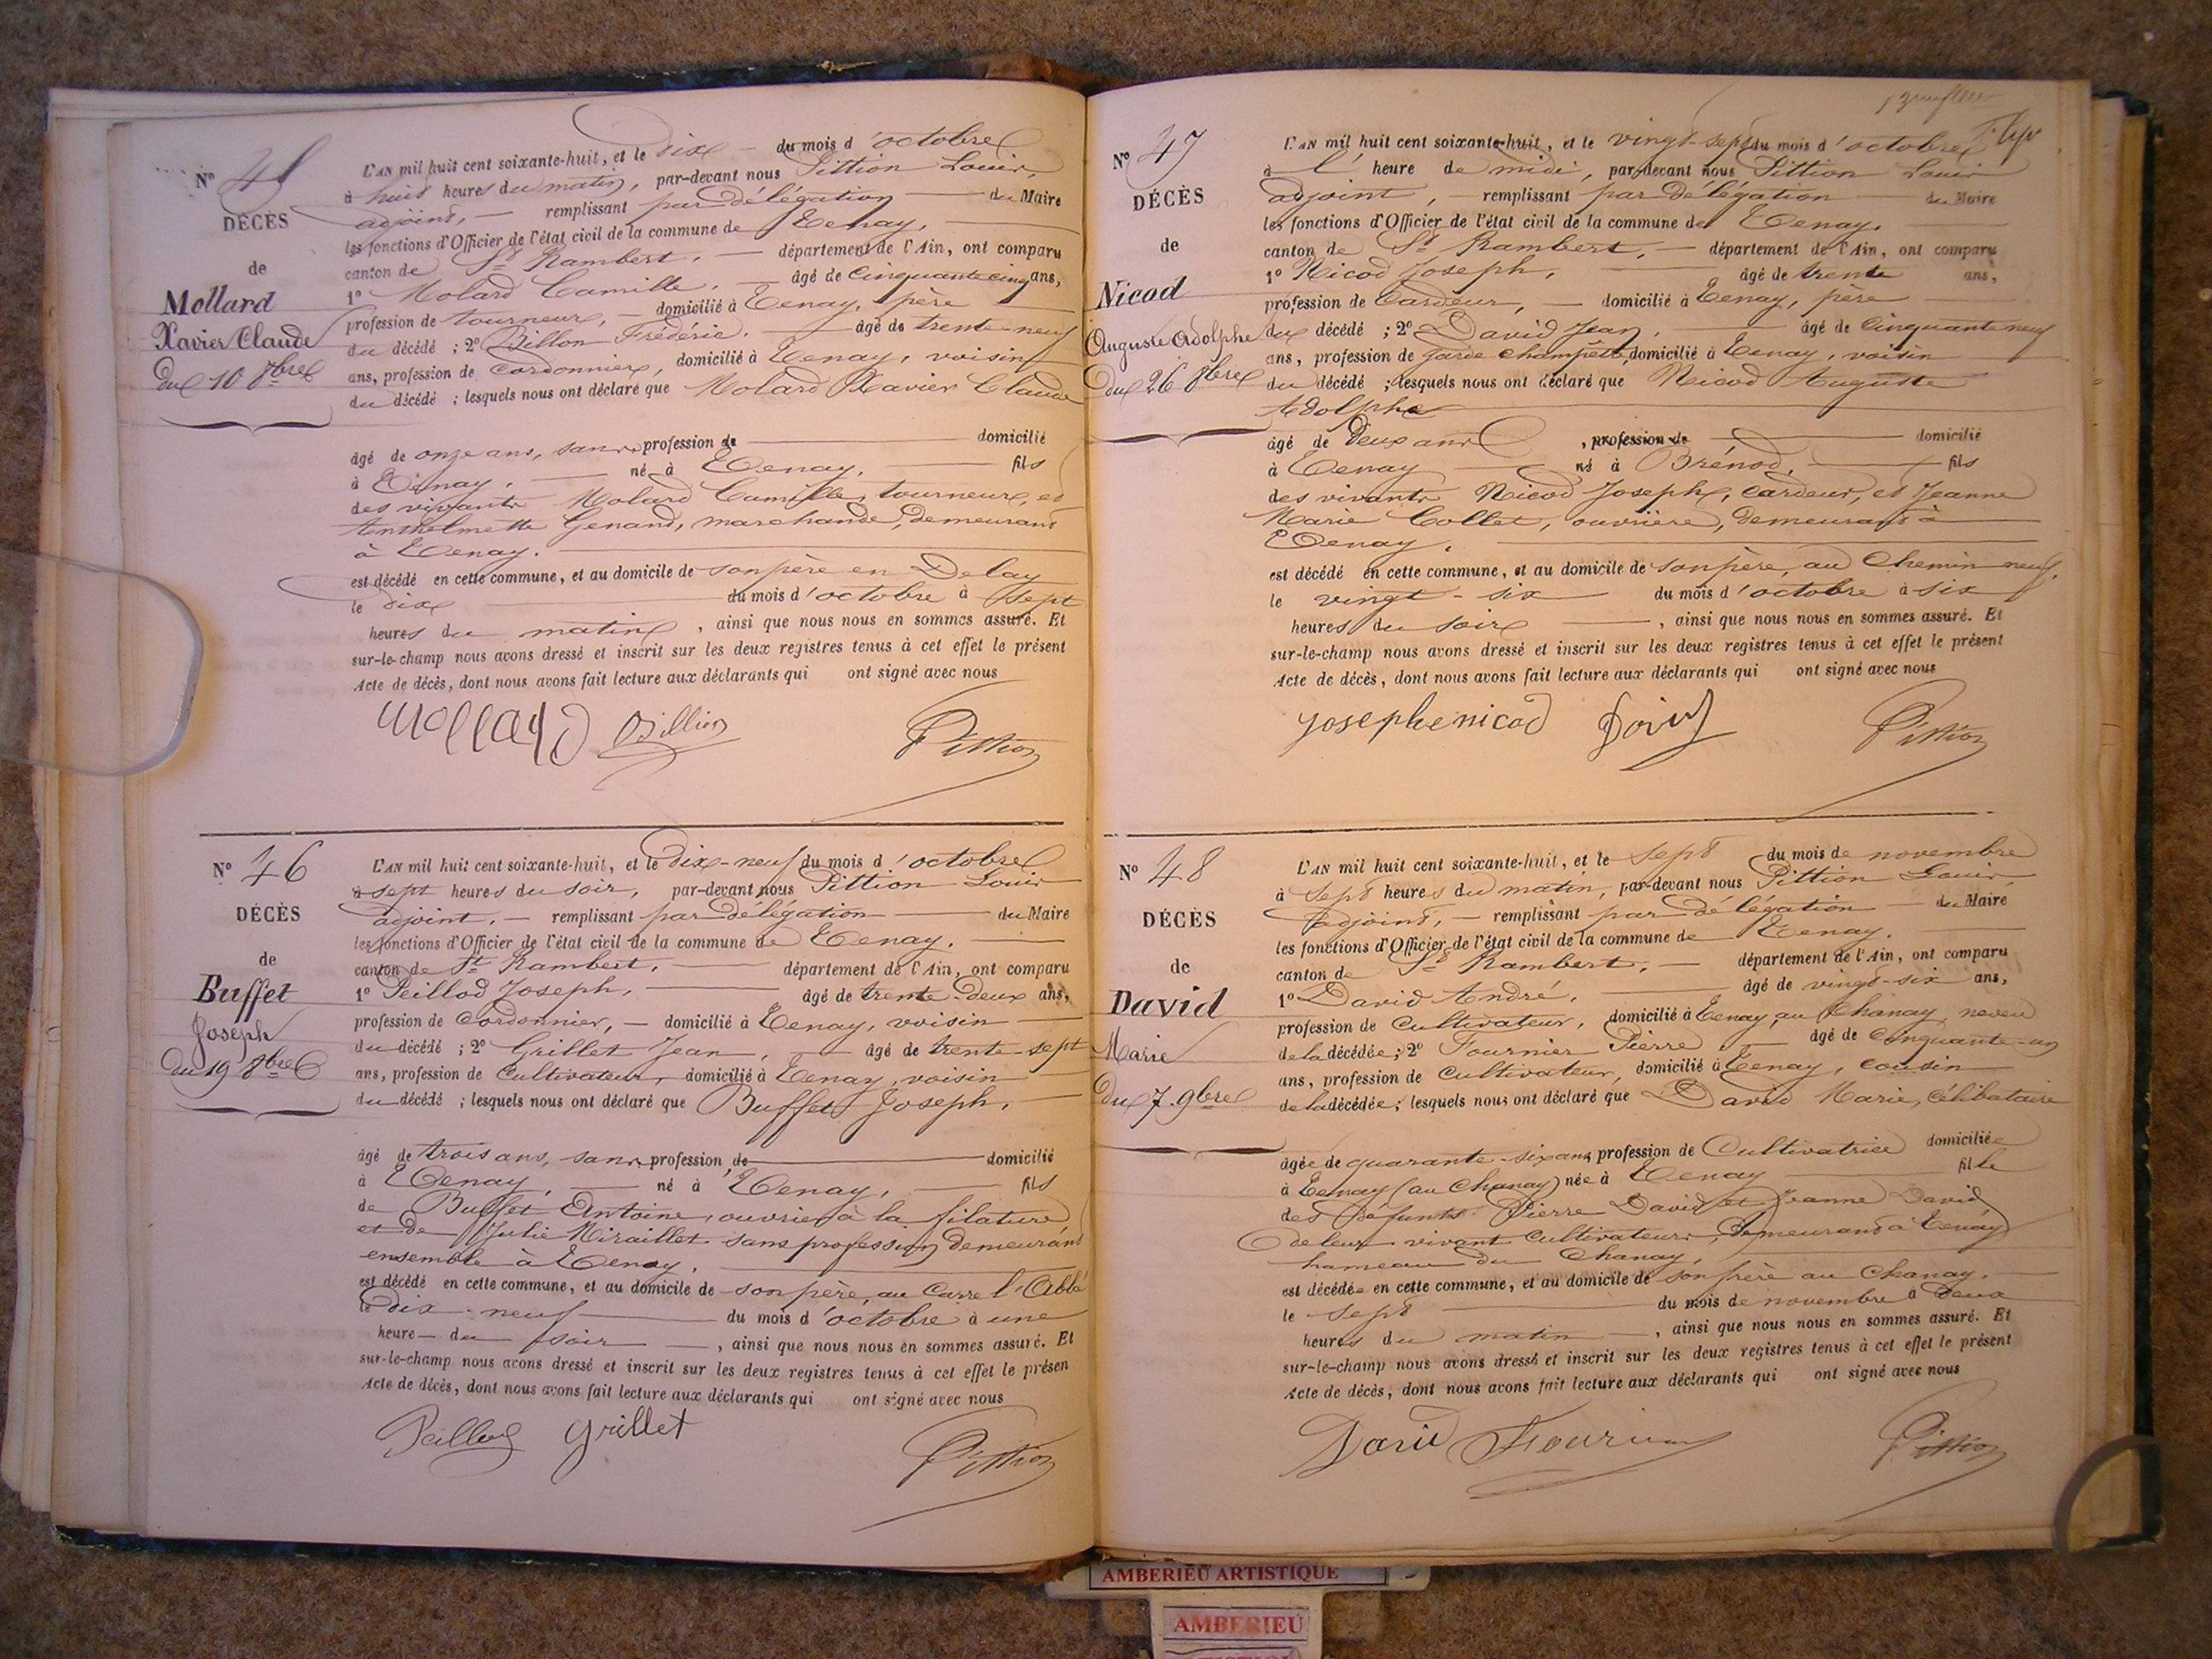 Nº 45
DÉCÈS
de
Mollard
Xavier Claude
du 10 8bre
L'AN mil huit cent soixante-huit, et le dix du mois d'octobre
à huit heures du matin, par-devant nous Pittion Louis,
adjoint, remplissant par délégation du Maire
les fonctions d'Officier de l'état civil de la commune de Tenay,
canton de St Rambert, département de l'Ain, ont comparu
1º Molard Camille, âgé de cinquante cinq ans,
profession de tourneur, domicilié à Tenay, père
du décédé ; 2º Billon Frédéric, âgé de trente-neuf
ans, profession de cordonnier, domicilié à Tenay, voisin
du décédé ; lesquels nous ont déclaré que Molard Xavier Claude
âgé de onze ans, sans profession de domicilié
à Tenay, né à Tenay, fils
des vivants Molard Camille, tourneur, et
Anthelmette Genand, marchande, demeurant
à Tenay.
est décédé en cette commune, et au domicile de son père en Delay
le dix du mois d'octobre à sept
heures du matin, ainsi que nous nous en sommes assuré. Et
sur-le-champ nous avons dressé et inscrit sur les deux registres tenus à cet effet le présent
Acte de décès, dont nous avons fait lecture aux déclarants qui ont signé avec nous
Mollard Billion Pittion
Nº 46
DÉCÈS
de
Buffet
Joseph
du 19 8bre
L'AN mil huit cent soixante-huit, et le dix-neuf du mois d'octobre
à sept heures du soir, par-devant nous Pittion Louis
adjoint, remplissant par délégation du Maire
les fonctions d'Officier de l'état civil de la commune de Tenay.
canton de St Rambert, département de l'Ain, ont comparu
1º Peillod Joseph, âgé de trente-deux ans,
profession de cordonnier, domicilié à Tenay, voisin
du décédé ; 2º Grillet Jean, âgé de trente-sept
ans, profession de cultivateur, domicilié à Tenay, voisin
du décédé ; lesquels nous ont déclaré que Buffet Joseph,
âgé de trois ans, sans profession de domicilié
à Tenay, né à Tenay, fils
de Buffet Antoine, ouvrier à la filature,
et de Julie Miraillet sans profession demeurant
ensemble à Tenay.
est décédé en cette commune, et au domicile de son père, au Carre l'Abbé
le dix-neuf du mois d'octobre à une
heure du soir, ainsi que nous nous en sommes assuré. Et
sur-le-champ nous avons dressé et inscrit sur les deux registres tenus à cet effet le présen
Acte de décès, dont nous avons fait lecture aux déclarants qui ont signé avec nous
Peillod Grillet Pittion
Nº 47
DÉCÈS
de
Nicod
Auguste Adolphe
du 26 8bre
L'AN mil huit cent soixante-huit, et le vingt-sept du mois d'octobre
à l'heure de midi, par-devant nous Pittion Louis
adjoint, remplissant par délégation du Maire
les fonctions d'Officier de l'état civil de la commune de Tenay.
canton de St Rambert, département de l'Ain, ont comparu
1º Nicod Joseph, âgé de trente ans,
profession de cardeur, domicilié à Tenay, père
du décédé ; 2º David Jean, âgé de cinquante neuf
ans, profession de garde champêtre, domicilié à Tenay, voisin
du décédé ; lesquels nous ont déclaré que Nicod Auguste
Adolphe
âgé de deux ans, profession de domicilié
à Tenay né à Brénod, fils
des vivants Nicod Joseph, cardeur, et Jeanne
Marie Collet, ouvrière, demeurant à
Tenay.
est décédé en cette commune, et au domicile de son père, au Chemin neuf,
le vingt-six du mois d'octobre à six
heures du soir, ainsi que nous nous en sommes assuré. Et
sur-le-champ nous avons dressé et inscrit sur les deux registres tenus à cet effet le présent
Acte de décès, dont nous avons fait lecture aux déclarants qui ont signé avec nous
Josephe nicod David Pittion
Nº 48
DÉCÈS
de
David
Marie
du 7 9bre
L'AN mil huit cent soixante-huit, et le sept du mois de novembre
à sept heures du matin, par-devant nous Pittion Louis,
adjoint, remplissant par délégation du Maire
les fonctions d'Officier de l'état civil de la commune de Tenay.
canton de St Rambert, département de l'Ain, ont comparu
1º David André, âgé de vingt-six ans,
profession de cultivateur, domicilié à Tenay, au Chanay, neveu
de la décédée ; 2º Fournier Pierre âgé de cinquante-un
ans, profession de cultivateur, domicilié à Tenay, cousin
de la décédée ; lesquels nous ont déclaré que David Marie, célibataire
âgée de quarante-six ans, profession de Cultivatrice domiciliée
à Tenay (au Chanay) née à Tenay fille
des défunts Pierre David et Jeanne David
de leur vivant cultivateurs, demeurant à Tenay
hameau du Chanay,
est décédée en cette commune, et au domicile de son frère au Chanay,
le sept du mois de novembre à deux
heures du matin, ainsi que nous nous en sommes assuré. Et
sur-le-champ nous avons dressé et inscrit sur les deux registres tenus à cet effet le présent
Acte de décès, dont nous avons fait lecture aux déclarants qui ont signé avec nous
David Fournier Pittion
AMBERIEU ARTISTIQUE
AMBERIEU